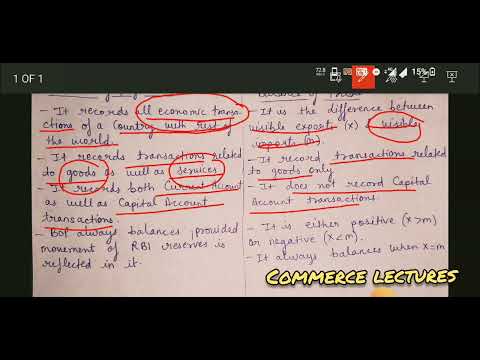 72.8
15%
1 OF 1
- It records all economic transa-
ctions of a Country with rest of
the world.
- It records transactions related
to goods as well as services
- It records both Current Account
as well as Capital Account
transactions.
- BOP always balances, provided
movement of RBI reserves is
reflected in it.
- It is the difference between
visible export (x) & visible
imports (m).
- It record transactions related
to goods only
- It does not record Capital
Account transactions.
- It is either positive (x>m)
or negative (x<m).
- It always balances when x=m
COMMERCE LECTURES